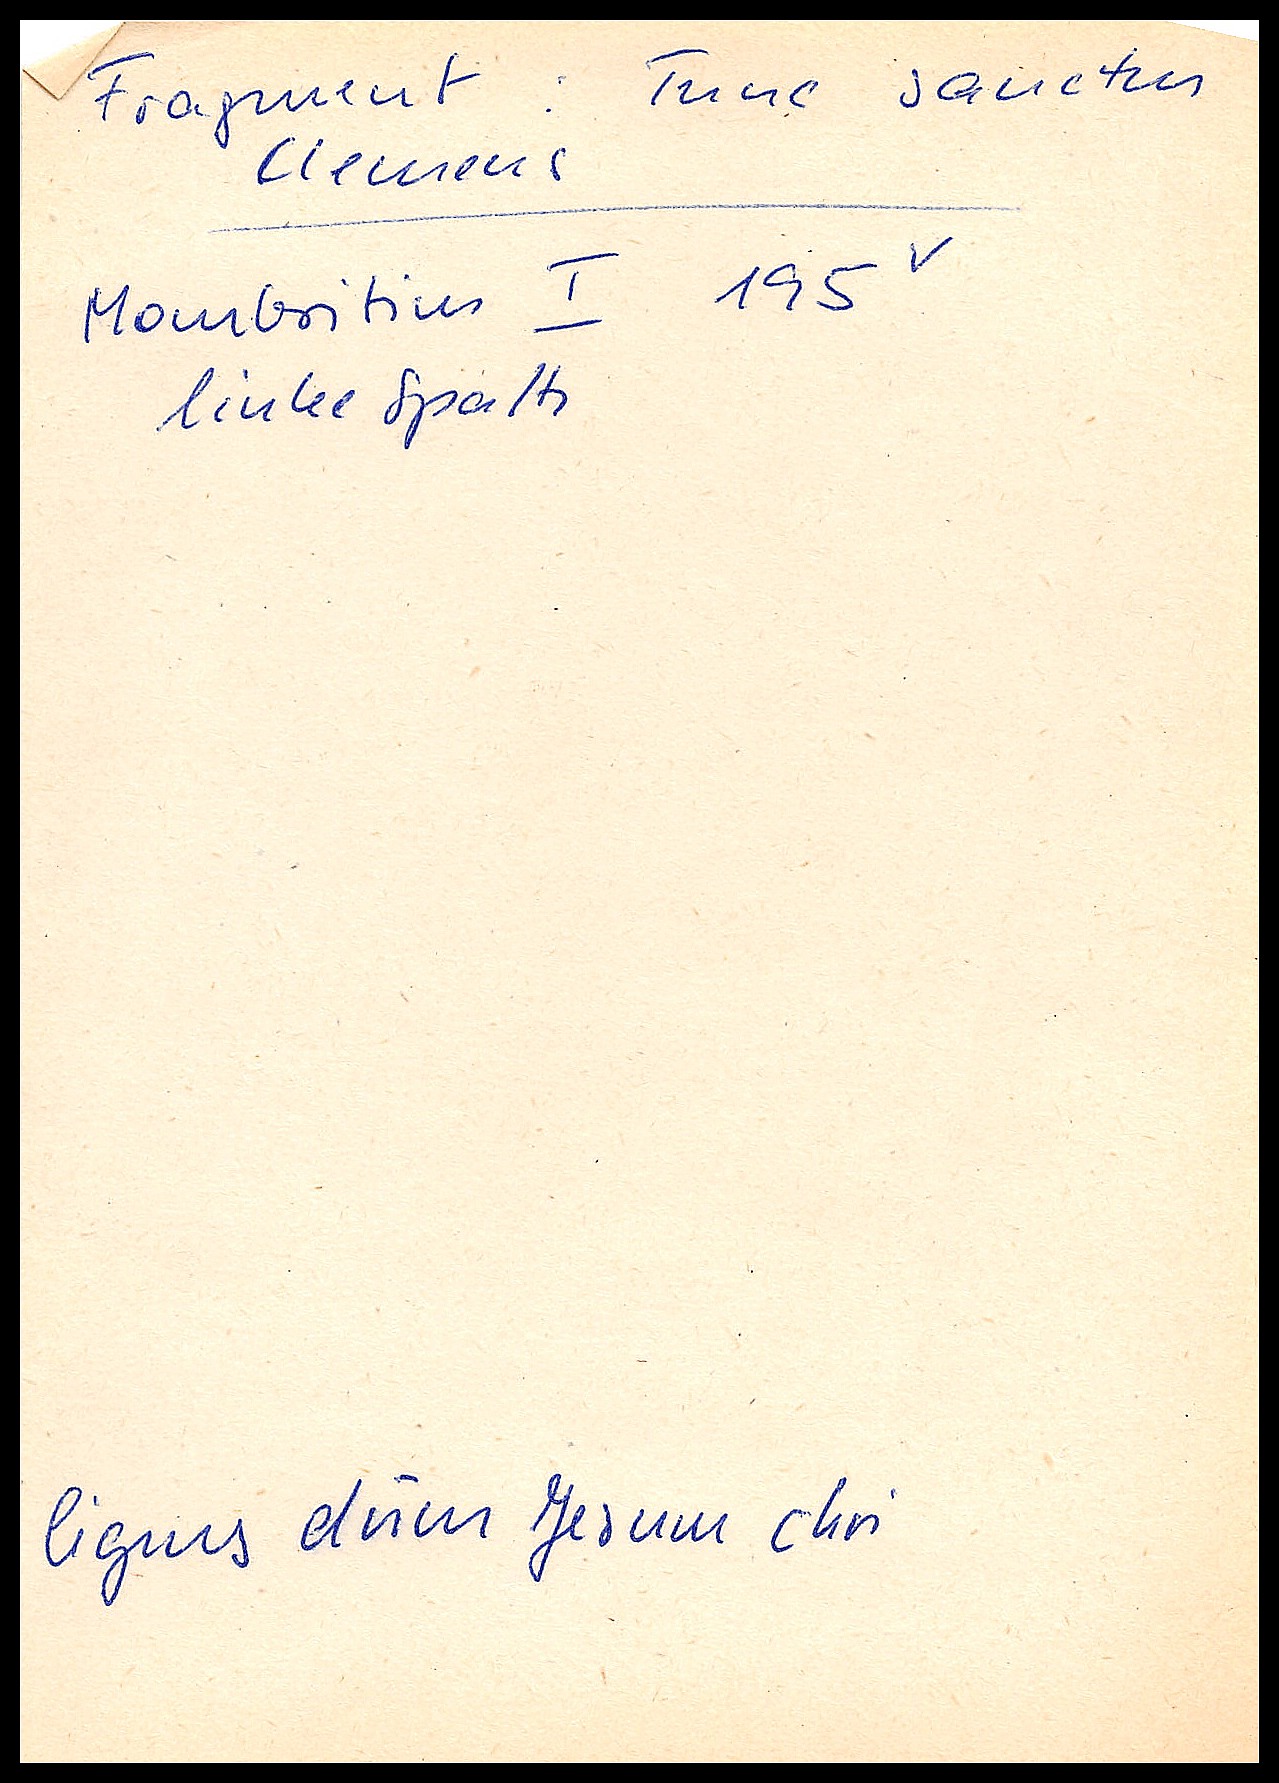 Fragment : Tunc sanctus
Clemens
Mombritius I 195 v
linke Spalte
lignus dūm Jesum chri